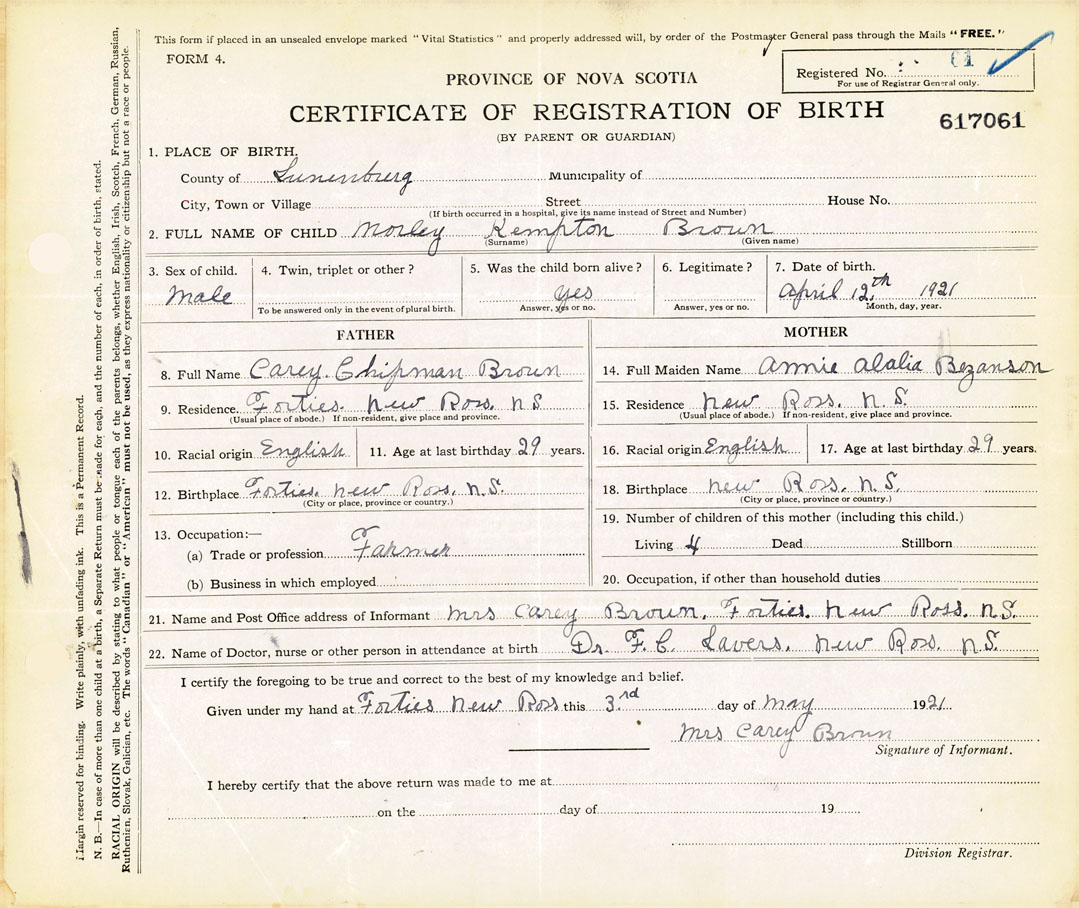 This form if placed in an unsealed envelope marked "Vital Statistics" and properly addressed will, by order of the Postmaster General pass through the Mails "FREE."
FORM 4.
Registered No. 61
For use of Registrar General only.
PROVINCE OF NOVA SCOTIA
CERTIFICATE OF REGISTRATION OF BIRTH
617061
(BY PARENT OR GUARDIAN)
1. PLACE OF BIRTH.
County of Lunenburg Municipality of
City, Town or Village Street House No.
(If birth occurred in a hospital, give its name instead of Street and Number)
2. FULL NAME OF CHILD Morley Kempton Brown
(Surname) (Given name)
3. Sex of child. 4. Twin, triplet or other? 5. Was the child born alive? 6. Legitimate? 7. Date of birth.
Male yes April 12th 1921
To be answered only in the event of plural birth. Answer, yes or no. Answer, yes or no. Month, day, year.
FATHER
8. Full Name Carey Chipman Brown
9. Residence. Forties. New Ross. N S
(Usual place of abode.) If non-resident, give place and province.
10. Racial origin English 11. Age at last birthday 29 years.
12. Birthplace Forties. New Ross. N.S.
(City or place, province or country.)
13. Occupation:—
(a) Trade or profession Farmer
(b) Business in which employed
MOTHER
14. Full Maiden Name Annie Alalia Bezanson
15. Residence New Ross. N.S.
(Usual place of abode.) If non-resident, give place and province.
16. Racial origin English 17. Age at last birthday 29 years.
18. Birthplace New Ross. N.S.
(City or place, province or country.)
19. Number of children of this mother (including this child.)
Living 4 Dead Stillborn
20. Occupation, if other than household duties
21. Name and Post Office address of Informant Mrs Carey Brown. Forties. New Ross. N.S.
22. Name of Doctor, nurse or other person in attendance at birth Dr. F. C. Lavers. New Ross. N.S.
I certify the foregoing to be true and correct to the best of my knowledge and belief.
Given under my hand at Forties New Ross this 3rd day of May 1921
Mrs Carey Brown
Signature of Informant.
I hereby certify that the above return was made to me at
on the day of 19
Division Registrar.
Margin reserved for binding. Write plainly, with unfading ink. This is a Permanent Record.
N. B.—In case of more than one child at a birth, a Separate Return must be made for each, and the number of each, in order of birth, stated.
RACIAL ORIGIN will be described by stating to what people or tongue each of the parents belongs, whether English, Irish, Scotch, French, German, Russian,
Ruthenian, Slovak, Galician, etc. The words "Canadian" or "American" must not be used, as they express nationality or citizenship but not a race or people.